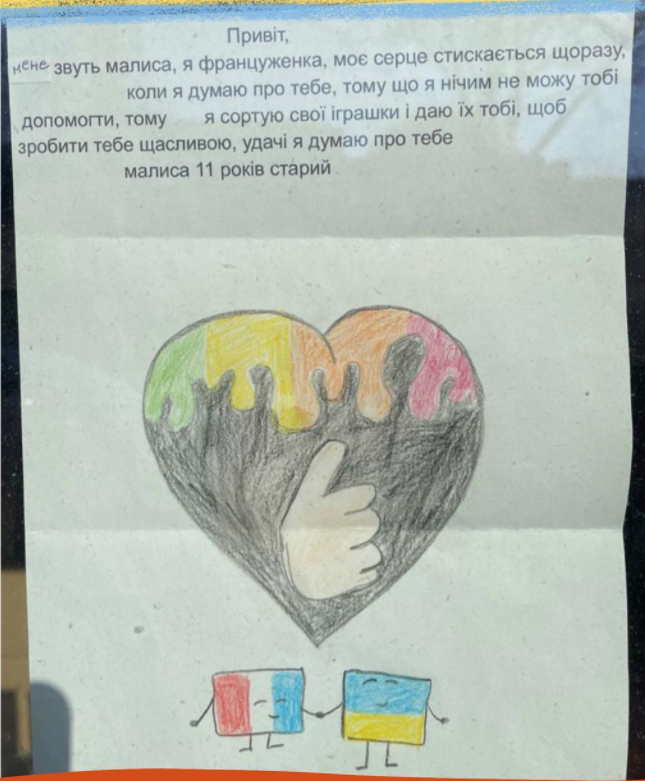 Привіт,
мене звуть малиса, я француженка, моє серце стискається щоразу,
коли я думаю про тебе, тому що я нічим не можу тобі
допомогти, тому я сортую свої іграшки і даю їх тобі, щоб
зробити тебе щасливою, удачі я думаю про тебе
малиса 11 років старий